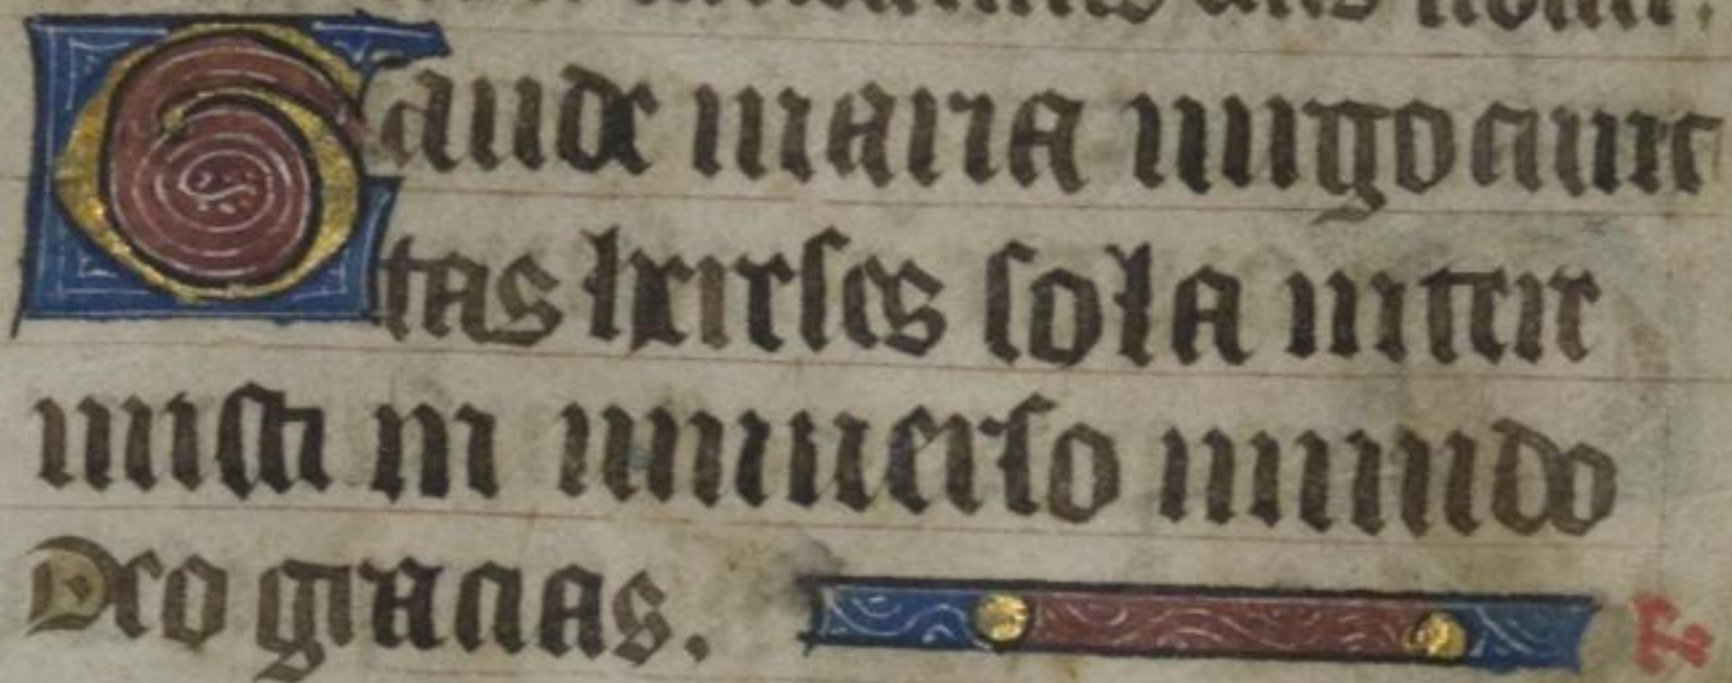 Gaude maria uirgo cunc
tas hereses sola intere
misti in uniuerso mundo
Deo gracias.